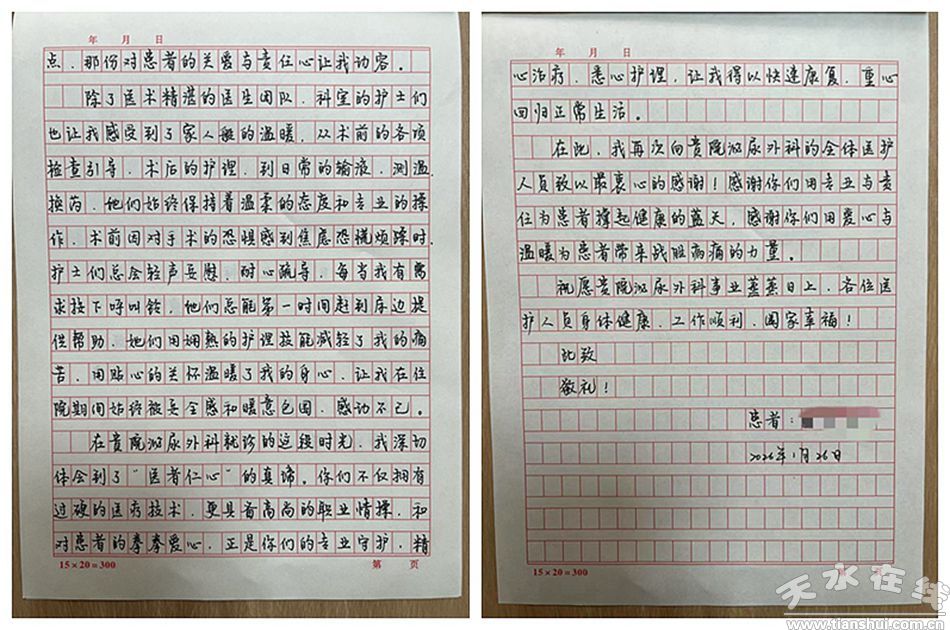 年 月 日
点,那份对患者的关爱与责任心让我动容。
除了医术精湛的医生团队,科室的护士们
也让我感受到了家人般的温暖,从术前的各项
检查引导,术后的护理,到日常的输液、测温、
换药,她们始终保持着温柔的态度和专业的操
作,术前因对手术的恐惧感到焦虑恐慌烦躁时,
护士们总会轻声安慰、耐心疏导,每当我有需
求按下呼叫铃,他们总能第一时间赶到床边提
供帮助,她们用娴熟的护理技能减轻了我的病
苦,用贴心的关怀温暖了我的身心,让我在住
院期间始终被安全感和暖意包围,感动不已。
在贵院泌尿外科就诊的这段时光,我深切
体会到了“医者仁心”的真谛。你们不仅拥有
过硬的医疗技术,更具备高尚的职业情操,和
对患者的拳拳爱心,正是你们的专业守护,精
15×20=300 第 页
年 月 日
心治疗、悉心护理,让我得以快速康复,重心
回归正常生活。
在此,我再次向贵院泌尿外科的全体医护
人员致以最衷心的感谢!感谢你们用专业与责
任为患者撑起健康的蓝天,感谢你们用爱心与
温暖为患者带来战胜病痛的力量。
祝愿贵院泌尿外科事业蒸蒸日上,各位医
护人员身体健康、工作顺利、阖家幸福!
此致
敬礼!
患者:
2026年1月26日
15×20=300
天水在线
www.tianshui.com.cn